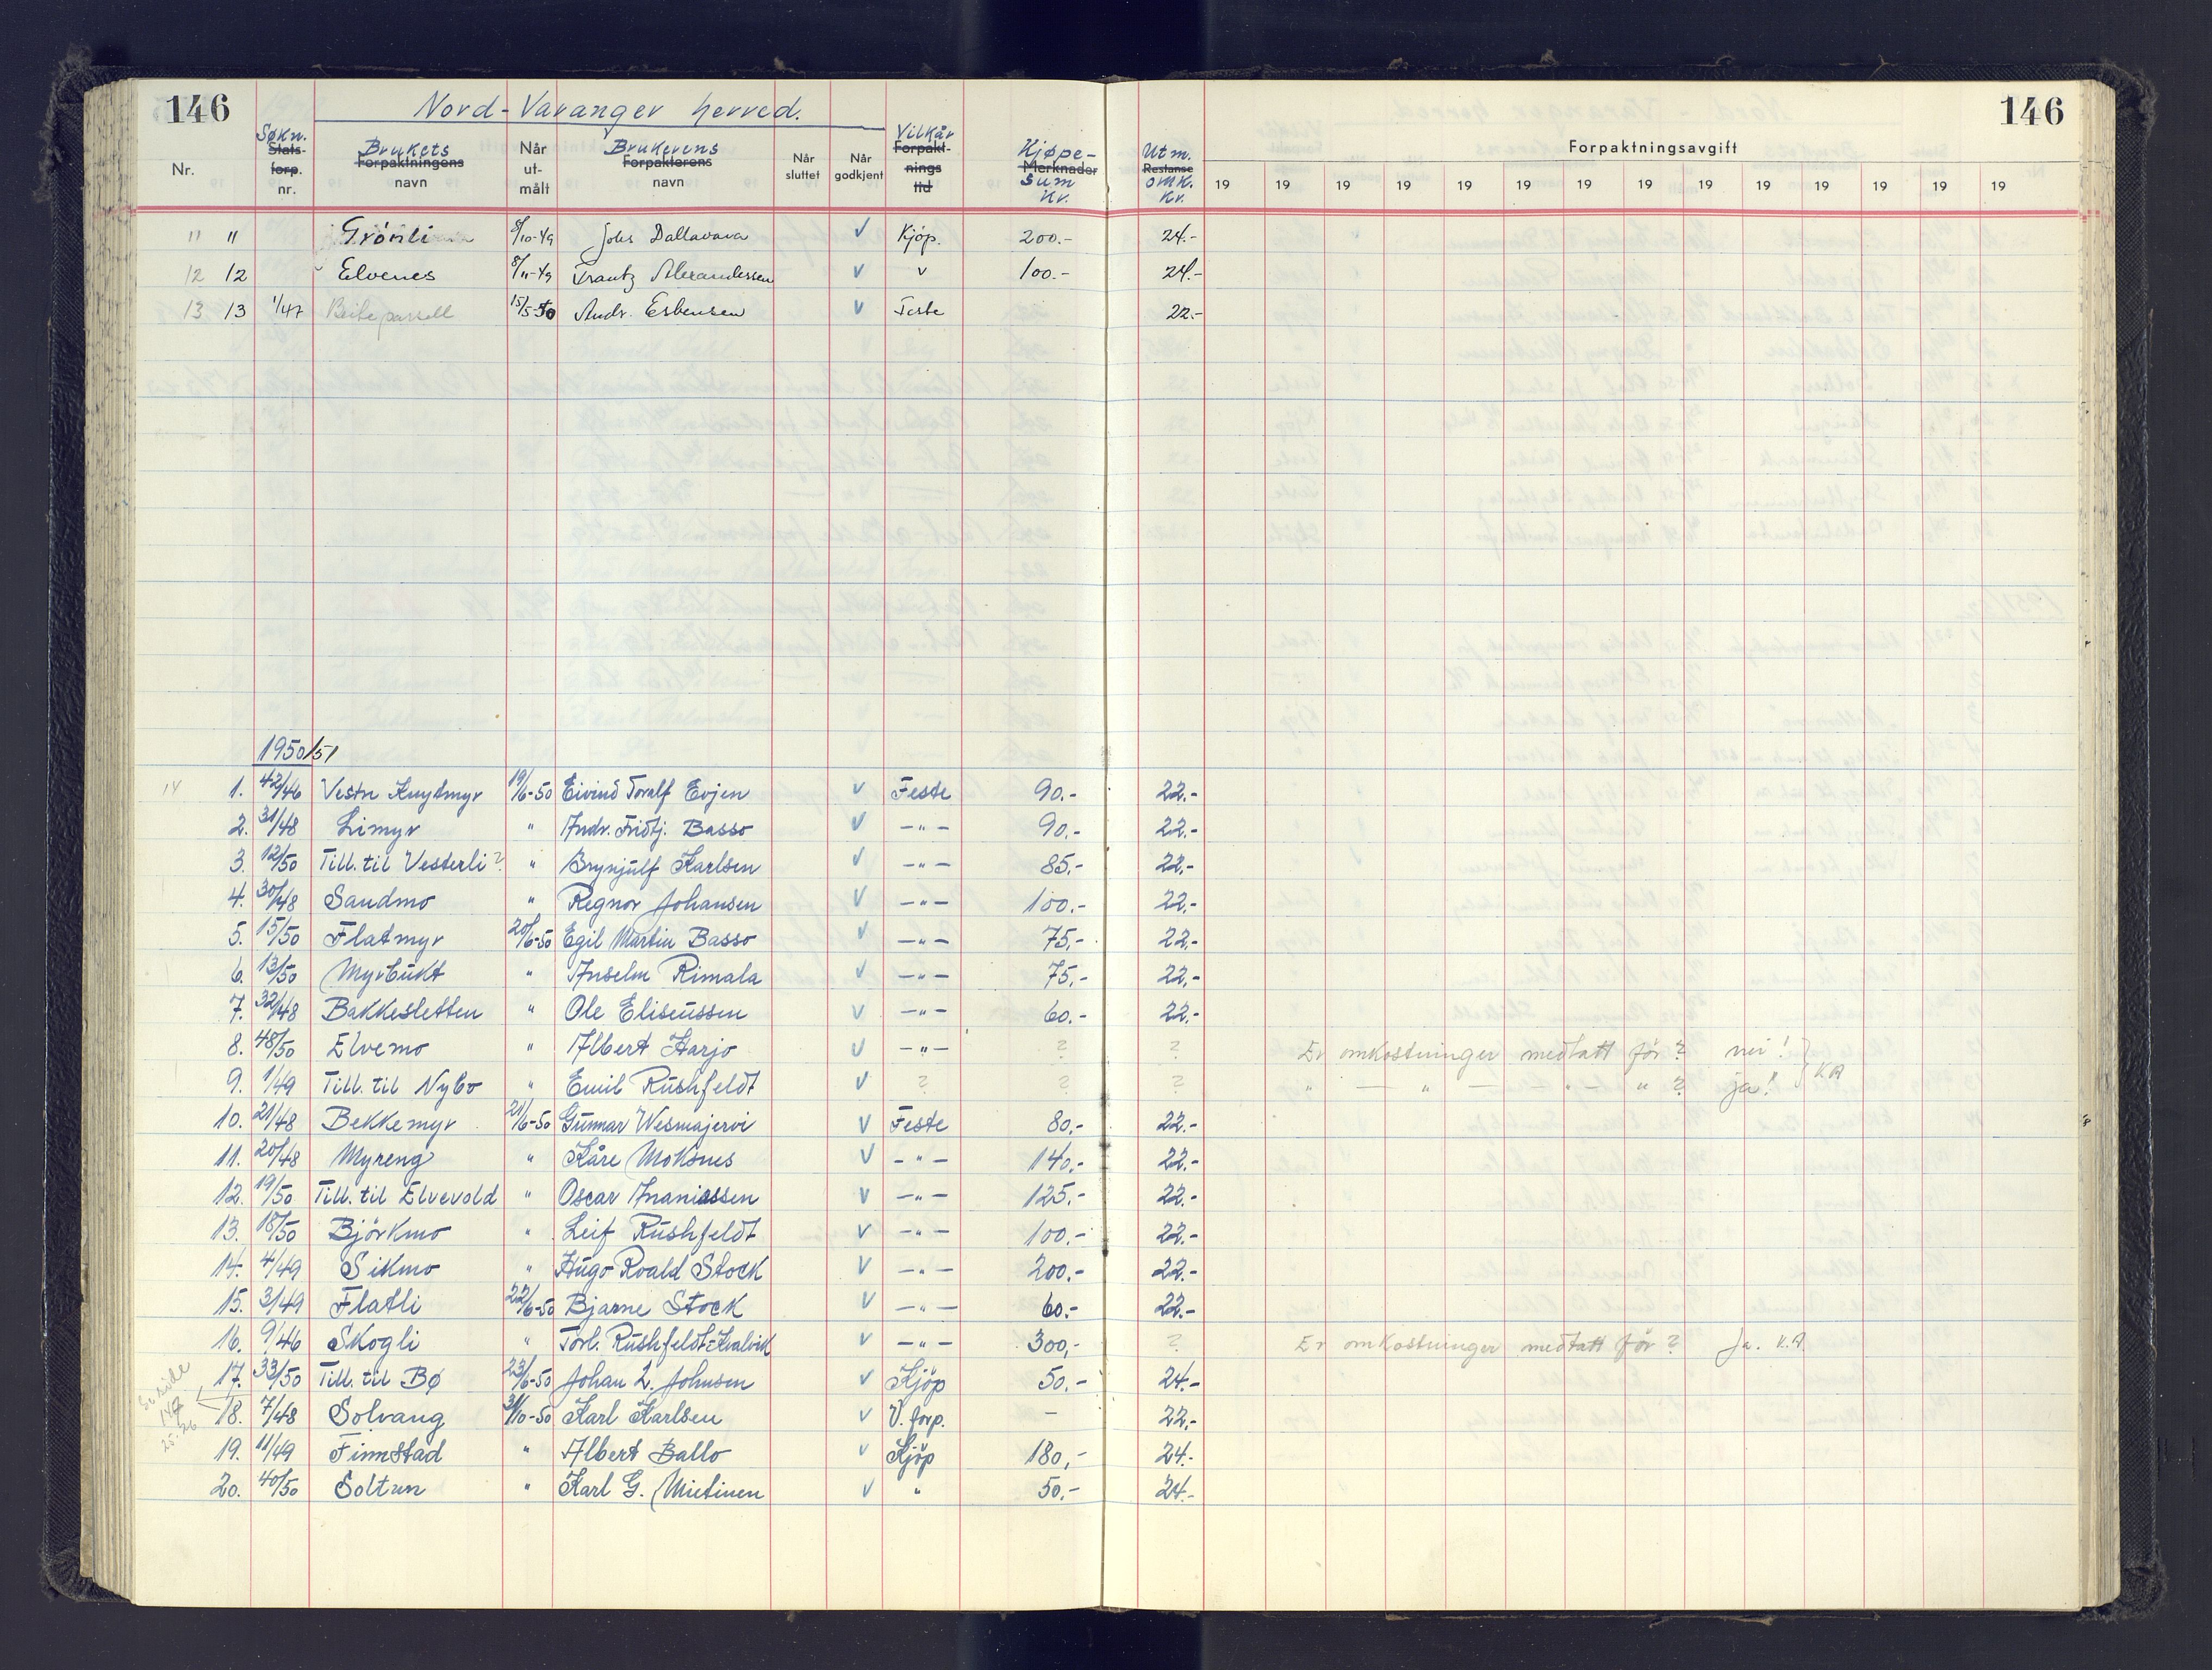 146 Nord-Varanger herred. 146
Nr. Søkn. Stats-forp. nr. Brukets Forpaktningens navn Når ut-målt Brukerens Forpakterens navn Når sluttet Når godkjent Vilkår Forpakt-nings tid Kjøpe- Merknader sum Kr. Utm. Restanse omk. Kr. Forpaktningsavgift
19 19 19 19 19 19 19 19 19 19 19 19 19 19
11 11 Grönli 8/10-49 Johs Dallavara v Kjöp. 200.- 24.-
12 12 Elvenes 8/11-49 Frantz Alexandersen v v 100.- 24.-
13 13 1/47 Beiteparsell 15/5-50 Andr. Esbensen v Feste 22.-
1950/51
14 1. 42/46 Vestre Knytmyr 19/6-50 Eivind Toralf Evjen v Feste 90.- 22.-
2. 31/48 Limyr " Andr. Fridtj. Basso v -"- 90.- 22.-
3. 12/50 Till. til Vesterli? " Brynjulf Karlsen v -"- 85.- 22.-
4. 30/48 Sandmo " Regnor Johansen v -"- 100.- 22.-
5. 15/50 Flatmyr 20/6-50 Egil Martin Basso v -"- 75.- 22.-
6. 13/50 Myrbukt " Anselm Rimala v -"- 75.- 22.-
7. 32/48 Bakkesletten " Ole Eliseussen v -"- 60.- 22.-
8. 48/50 Elvemo " Albert Harjo v -"- ? ? Er omkostninger medtatt för? nei!
9. 1/49 Till. til Nybo " Emil Rushfeldt v ? ? ? " - " - " - " ? ja! } KA
10. 21/48 Bekkemyr 21/6-50 Gunnar Wesmajervi v Feste 80.- 22.-
11. 20/48 Myreng " Kåre Moksnes v -"- 140.- 22.-
12. 19/50 Till. til Elvevold " Oscar Ananiassen v -"- 125.- 22.-
13. 18/50 Björkmo " Leif Rushfeldt v -"- 100.- 22.-
14. 4/49 Sikmo " Hugo Roald Stock v -"- 200.- 22.-
15. 3/49 Flatli 22/6-50 Bjarne Stock v -"- 60.- 22.-
16. 9/46 Skogli " Torl. Rushfeldt-Kvalvik v -"- 300,- ? Er omkostninger medtatt för? Ja. K.A
17. 33/50 Till. til Bø 23/6-50 Johan L. Johnsen v Kjöp 50.- 24.-
Se side 147 25-26
18. 7/48 Solvang 31/10-50 Karl Karlsen v V. forp. - 22.-
19. 11/49 Finnstad " Albert Ballo v Kjöp 180,- 24.-
20. 40/50 Soltun " Karl G. Mietinen v " 50.- 24.-